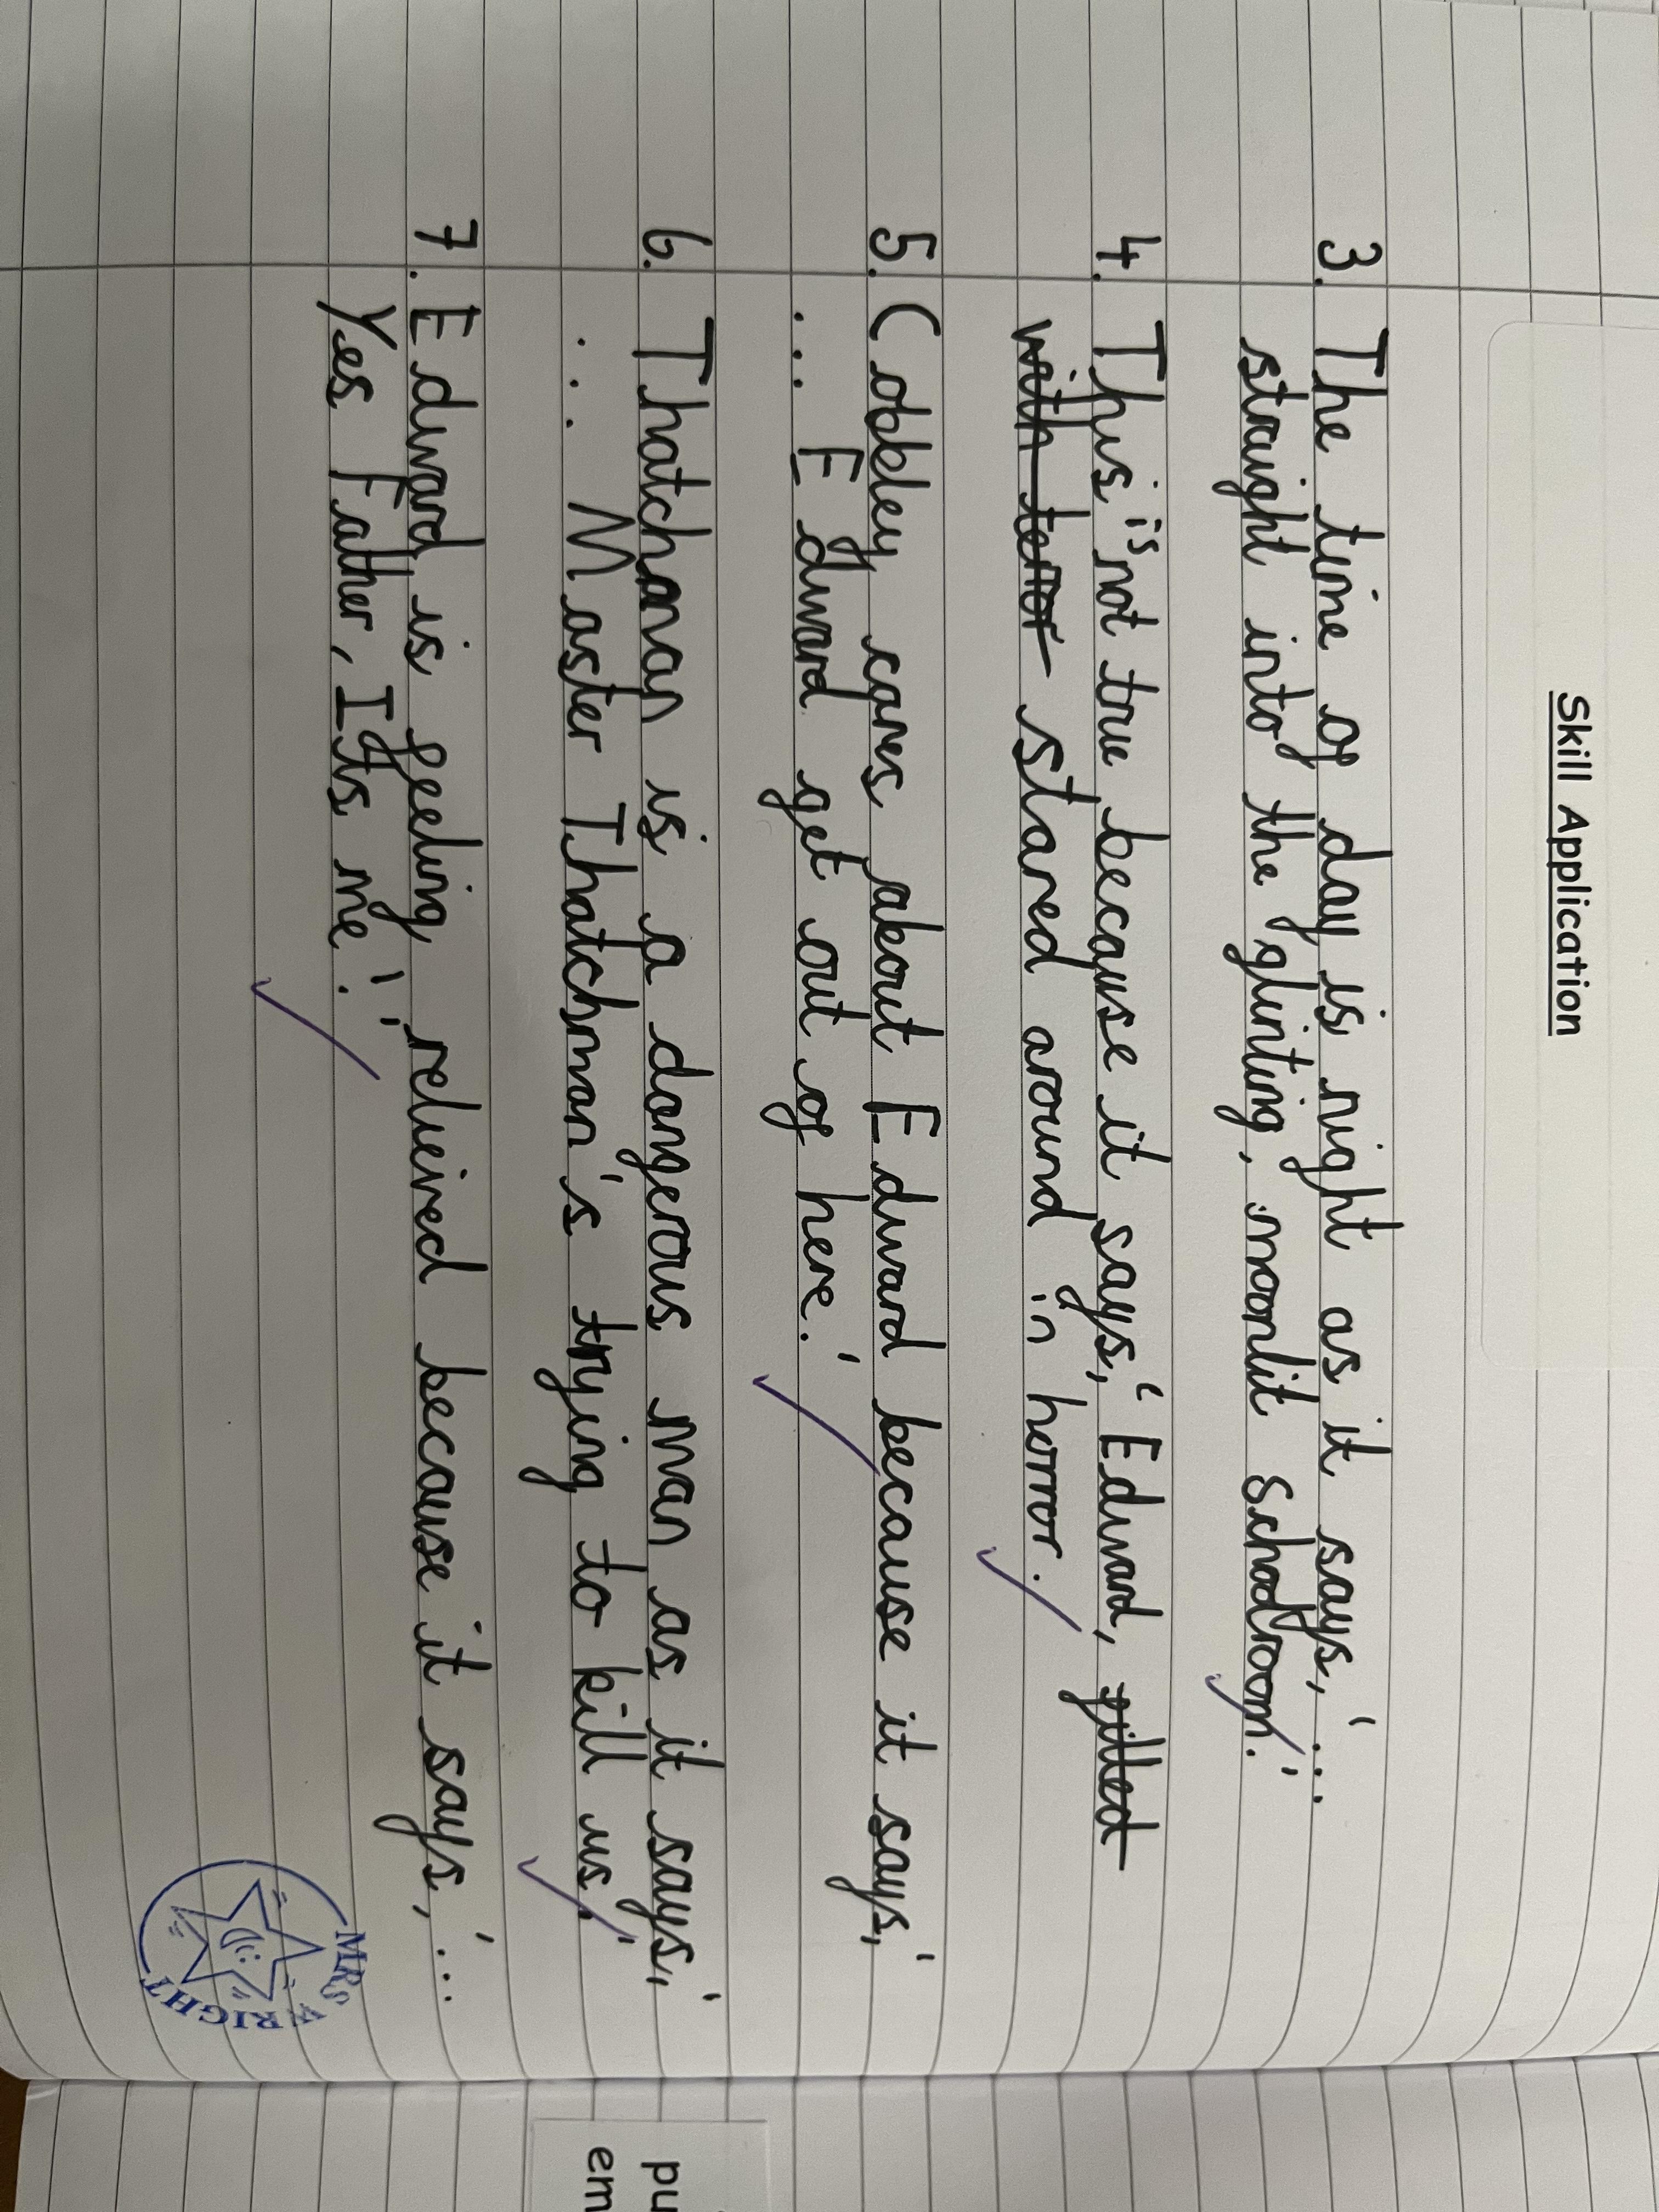 Skill Application
3. The time of day is night as it says, '...
straight into the glinting, moonlit schoolroom.'
4. This is not true because it says, 'Edward, filled
with terror stared around in horror.
5. Cobbley cares about Edward because it says, '
... Edward get out of here.'
6. Thatchman is a dangerous man as it says, '
... Master Thatchman's trying to kill us.'
7. Edward is feeling relieved because it says, '...
Yes Father, It's me!'.
MRS WRIGHT
pu
em